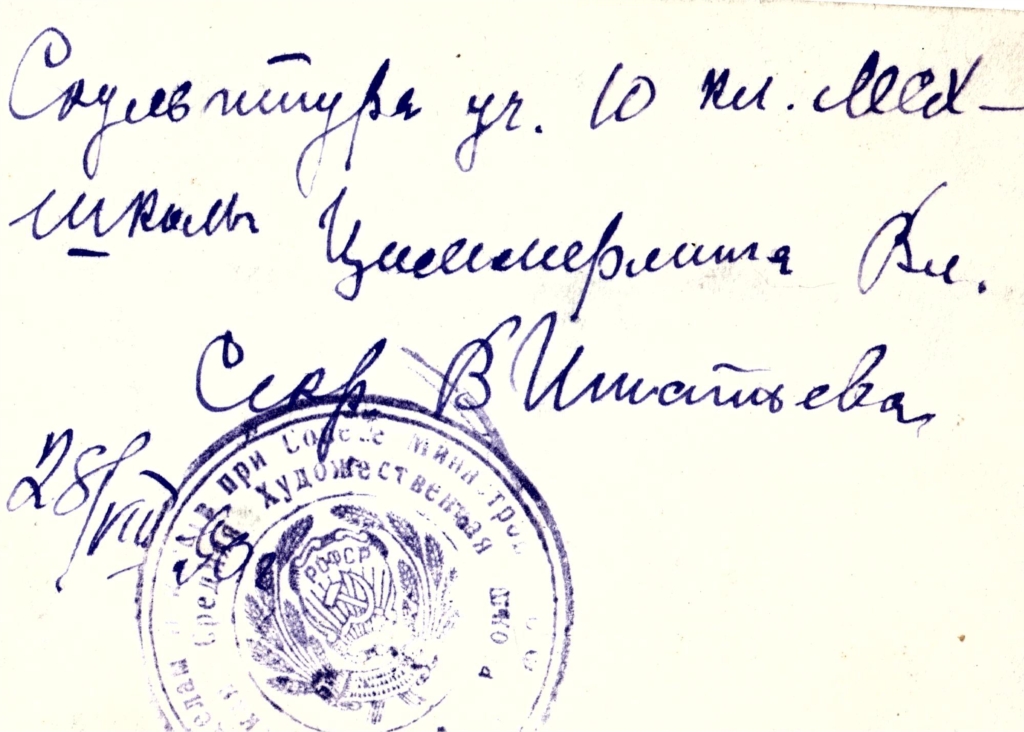 Скульптура уч. 10 кл. МСХ-
школы Циммерлинга Вл.
Секр. В Игнатьева
28/VIII
при Совете Министров
Средняя Художественная
школа
РСФСР